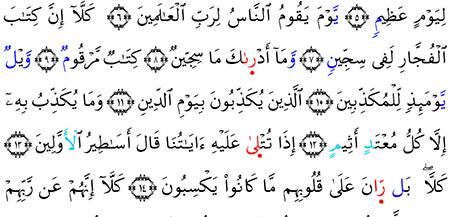 لِيَوْمٍ عَظِيمٍ ۝٥ يَوْمَ يَقُومُ ٱلنَّاسُ لِرَبِّ ٱلْعَـٰلَمِينَ ۝٦ كَلَّآ إِنَّ كِتَـٰبَ
ٱلْفُجَّارِ لَفِى سِجِّينٍ ۝٧ وَمَآ أَدْرَىٰكَ مَا سِجِّينٌ ۝٨ كِتَـٰبٌ مَّرْقُومٌ ۝٩ وَيْلٌ
يَوْمَئِذٍ لِّلْمُكَذِّبِينَ ۝١٠ ٱلَّذِينَ يُكَذِّبُونَ بِيَوْمِ ٱلدِّينِ ۝١١ وَمَا يُكَذِّبُ بِهِۦٓ
إِلَّا كُلُّ مُعْتَدٍ أَثِيمٍ ۝١٢ إِذَا تُتْلَىٰ عَلَيْهِ ءَايَـٰتُنَا قَالَ أَسَـٰطِيرُ ٱلْأَوَّلِينَ ۝١٣
كَلَّا ۖ بَل رَّانَ عَلَىٰ قُلُوبِهِم مَّا كَانُوا۟ يَكْسِبُونَ ۝١٤ كَلَّآ إِنَّهُمْ عَن رَّبِّهِمْ